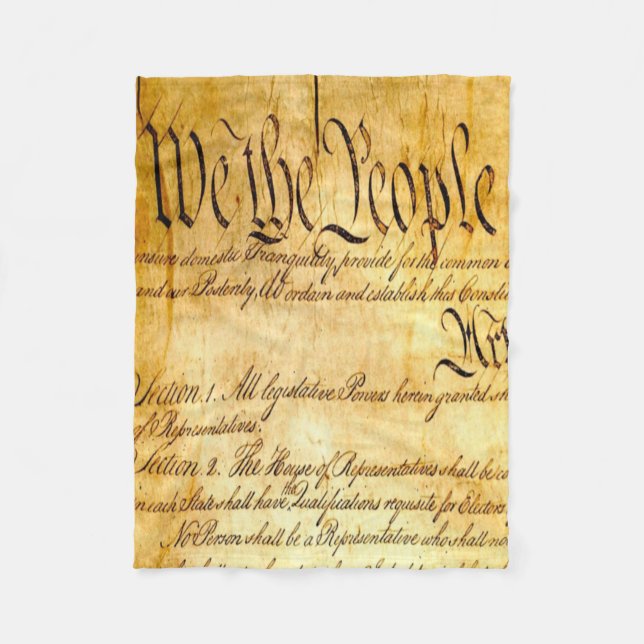 We the People
insure domestic Tranquility, provide for the common
and our Posterity, do ordain and establish this Const
Section. 1. All legislative Powers herein granted sh
of Representatives.
Section. 2. The House of Representatives shall be co
in each State shall have the Qualifications requisite for Electors
No Person shall be a Representative who shall no